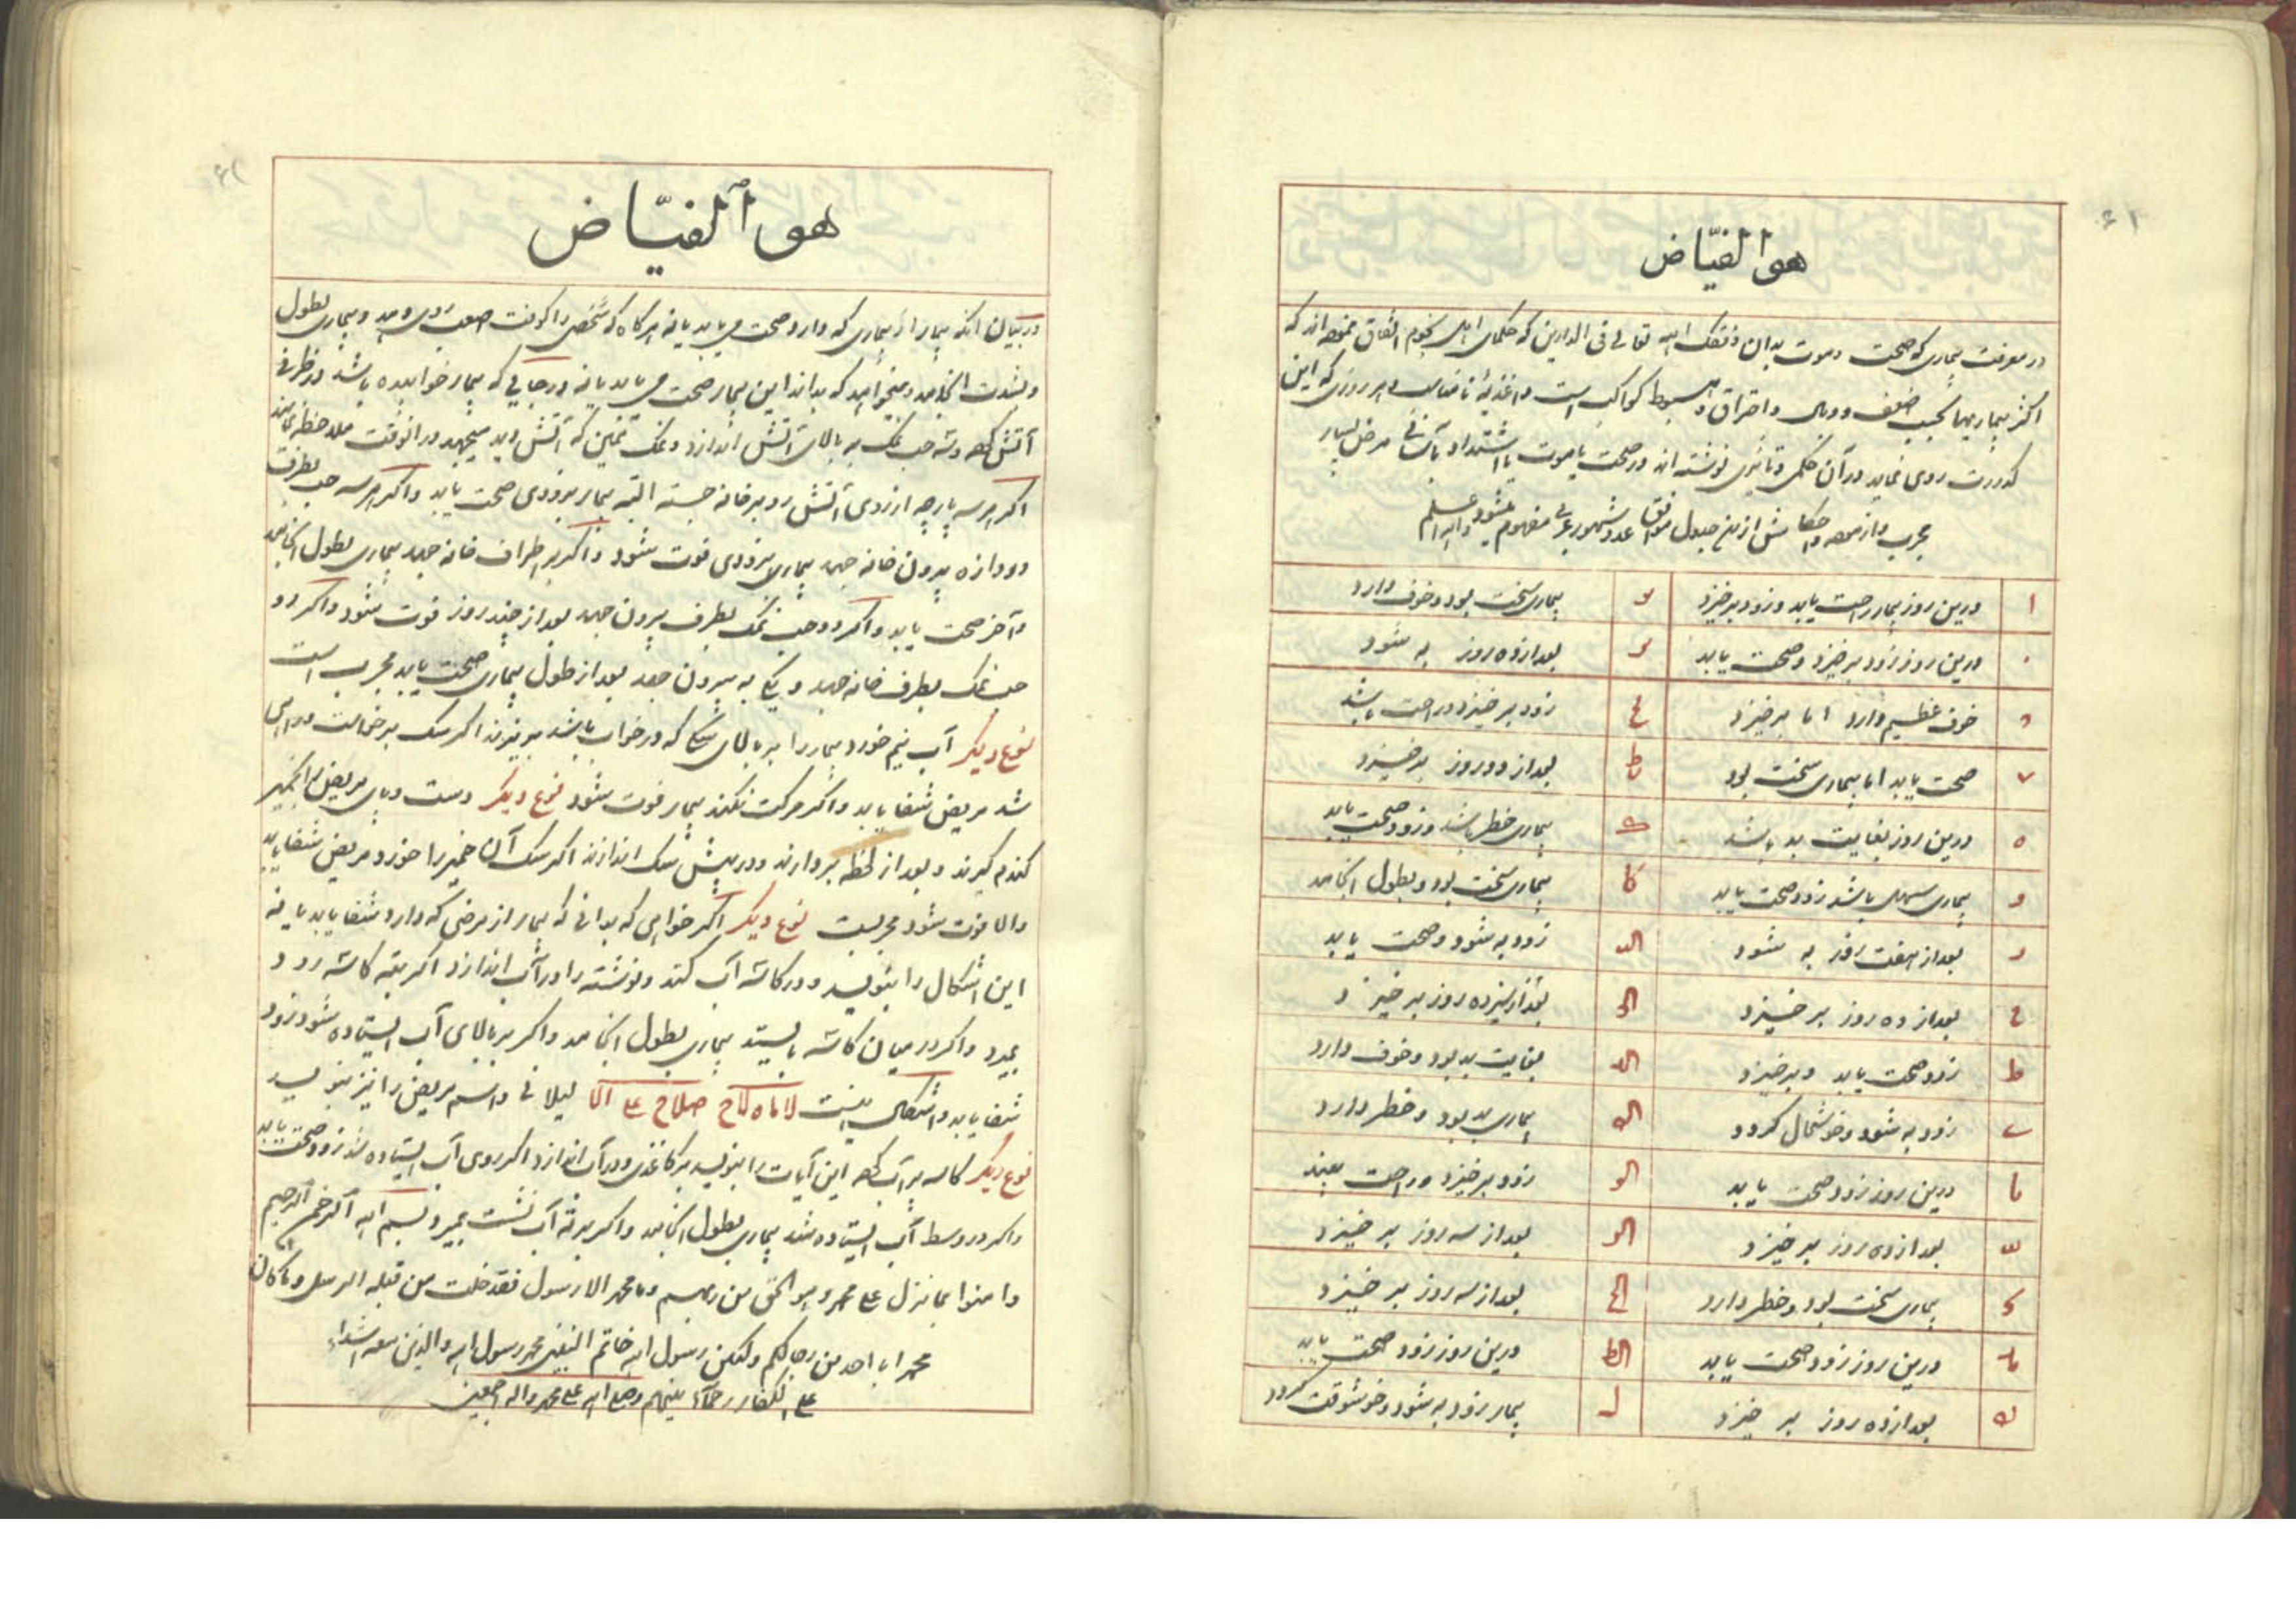 ۶۱
هو الفیّاض
در معرفت بیماری که صحت و موت بدان وفقک الله تعالی فی الدارین که حکمای اهل نجوم اتفاق نموده اند که
اکثر بیماریها بسبب ضعف و وبال و احتراق و هبوط کواکب است و اغذیه نامناسب و هر روزی که این
کدورت روی نماید در آن حکمی و تاثیری نوشته اند در صحت یا موت یا اشتداد یا مرض بسیار
مجرب و ازموده و احکامش ازین جدول موافق عدد شهور عربی مفهوم میشود والله اعلم
ا درین روز بیمار راحت یابد و زود برخیزد یو بیماری سخت بود و خوف دارد
ب درین روز زود برخیزد و صحت یابد یز بعد از ده روز به شود
ج خوف عظیم دارد اما برخیزد یح زود برخیزد و راحت باشد
د صحت یابد اما بیماری سخت بود یط بعد از دو روز برخیزد
ه درین روز بغایت بد باشد ک بیماری خطر باشد و زود صحت یابد
و بیماری سهل باشد زود صحت یابد کا بیماری سخت بود و بطول انجامد
ز بعد از هفت روز به شود کب زود به شود و صحت یابد
ح بعد از ده روز برخیزد کج بعد از سیزده روز برخیزد
ط زود صحت یابد و برخیزد کد بغایت بد بود و خوف دارد
ی زود به شود و خوشحال گردد که بیماری بد بود و خطر دارد
یا درین روز زود صحت یابد کو زود برخیزد و راحت بیند
یب بعد از ده روز برخیزد کز بعد از سه روز برخیزد
یج بیماری سخت بود و خطر دارد کح بعد از سه روز برخیزد
ید درین روز زود صحت یابد کط درین روز زود صحت یابد
یه بعد از ده روز برخیزد ل بیمار زود به شود و خوشوقت گردد
۶۲
هو الفیّاض
در بیان انکه بیمار از بیماری که دارد صحت می یابد یا نه هرگاه که شخصی را کوفت صعب روی دهد و بیماری بطول
و بشدت انجامد و میخواهد که بداند این بیمار صحت می یابد یا نه در جایی که بیمار خوابیده باشد در ظرفی
آتش کند و سه حب نمک به بالای آتش اندازد و نمک تمکین که آتش دید میجهد در انوقت ملاحظه نماید
اگر هر سه پارچه از روی آتش رو بر خانه جسته البته بیمار بزودی صحت یابد و اگر هر سه حب بطرف
دروازه بیرون خانه جهد بیمار بزودی فوت شود و اگر بر اطراف خانه جهد بیماری بطول انجامد
و آخر صحت یابد و اگر دو حب نمک بطرف بیرون جهد بعد از چند روز فوت شود و اگر دو
حب نمک بطرف خانه جهد و یکی به بیرون جهد بعد از طول بیماری صحت یابد مجرب است
نوع دیگر آب نیم خورد بیمار را بر بالای سگی که در خواب باشد بریزند اگر سگ برخاست در
شد مریض شفا یابد و اگر حرکت نکند بیمار فوت شود نوع دیگر دست و پای مریض را بخمیر
گندم گیرند و بعد از لحظه بردارند و در پیش سگ اندازند اگر سگ آن خمیر را خورد مریض شفا یابد
والا فوت شود مجربست نوع دیگر اگر خواهی که بدانی که بیمار از مرضی که دارد شفا یابد یا نه
این اشکال را بنویسد و در کاسه آب کند و نوشته را در آب اندازد اگر بته کاسه رود
بمیرد و اگر در میان کاسه بایستد بیماری بطول انجامد و اگر بر بالای آب ایستاده شود زود
شفا یابد و اشکال اینست و اسم مریض را نیز بنویسد
نوع دیگر کاسه پر آب کند این آیات را بنویسد بر کاغذی و در آب اندازد اگر روی آب ایستاده شد زود صحت یابد
و اگر در وسط آب ایستاده شد بیماری بطول انجامد و اگر بر ته آب نشست بمیرد بسم الله الرحمن الرحیم
وامنوا بما نزل علی محمد و هو الحق من ربهم وما محمد الا رسول قد خلت من قبله الرسل وما کان
محمد ابا احد من رجالکم ولکن رسول الله خاتم النبیین محمد رسول الله والذین معه اشداء
علی الکفار رحماء بینهم وصلی الله علی محمد واله اجمعین